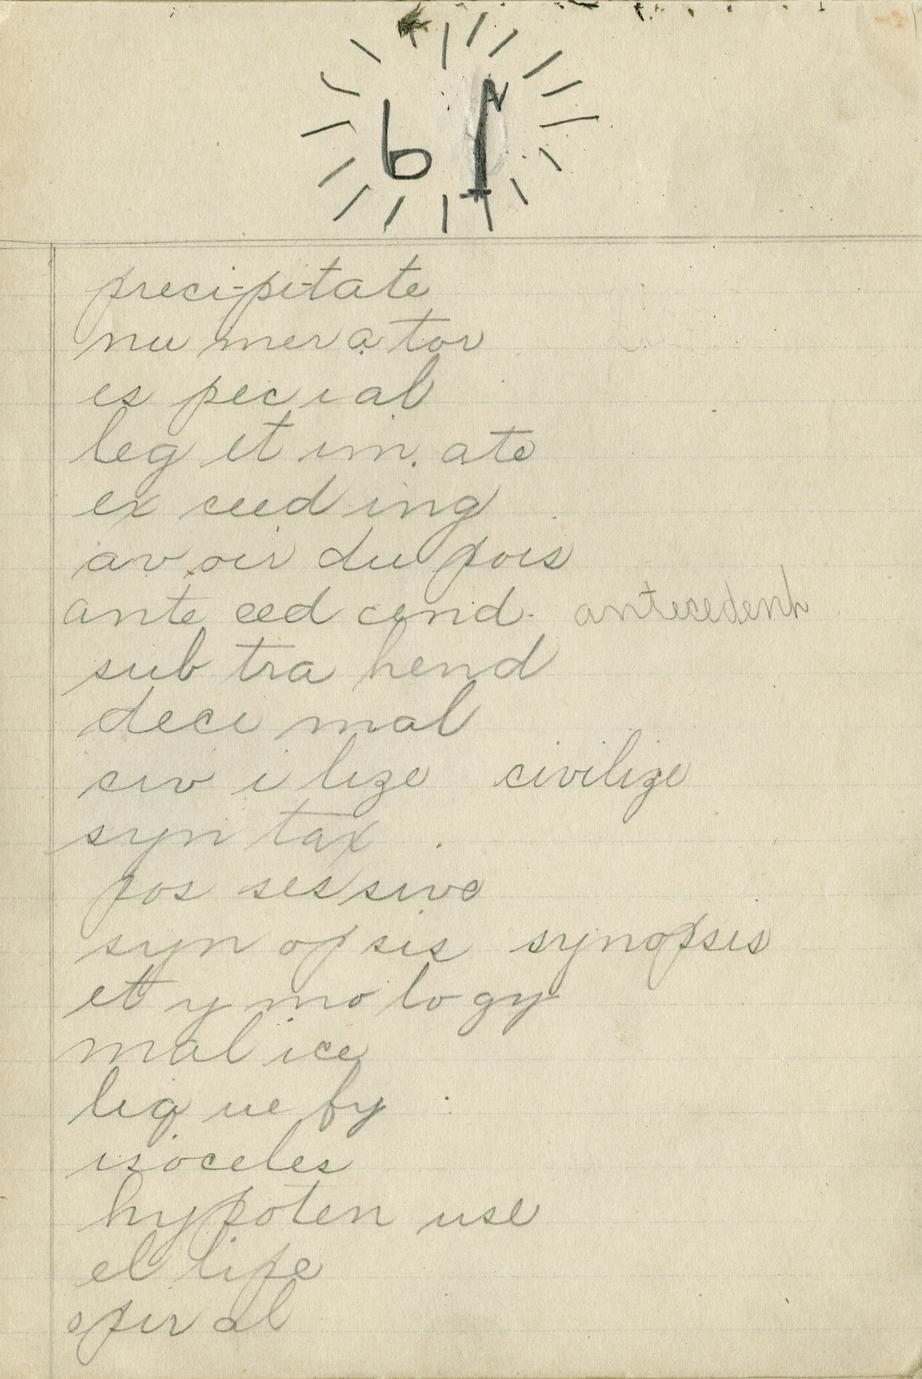 61
preci-pi-tate
nu mer a tor
es pec i al
leg et im. ate
ex ceed ing
av oir du pois
ante ced cend. antecedent
sub tra hend
deci mal
civ i lize civilize
syn tax
pos ses sive
syn op sis synopsis
et y mo lo gy
mal ice
liq ue fy
isoceles
hypoten use
el lipe
spir al